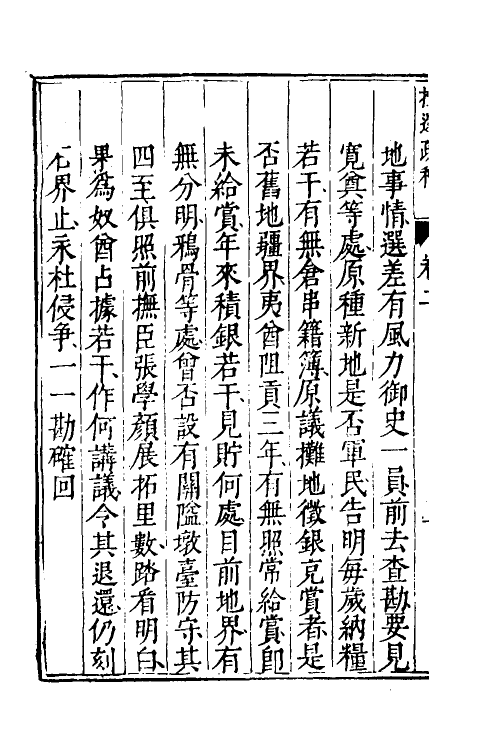 地事情選差有風力御史一員前去查勘要見
寬奠等處原種新地是否軍民告明每歲納糧
若干有無倉串籍簿原議攤地徵銀充賞者是
否舊地疆界夷酋阻貢三年有無照常給賞即
未給賞年來積銀若干見貯何處目前地界有
無分明鴉骨等處曾否設有關隘墩臺防守其
四至俱照前撫臣張學顏展拓里數踏看明白
果爲奴酋占據若干作何講議令其退還仍刻
石界止永杜侵爭一一勘確回